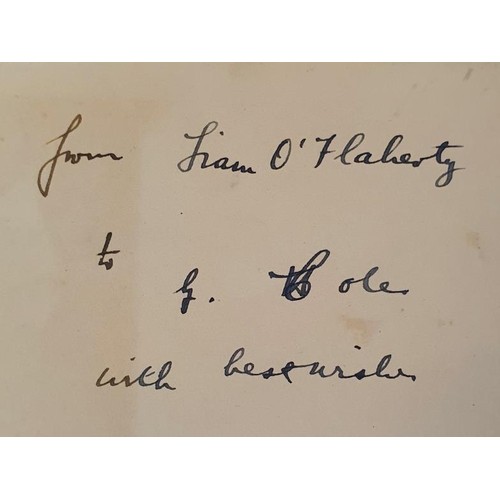 from Liam O'Flaherty
to
G. Cole
with best wishes